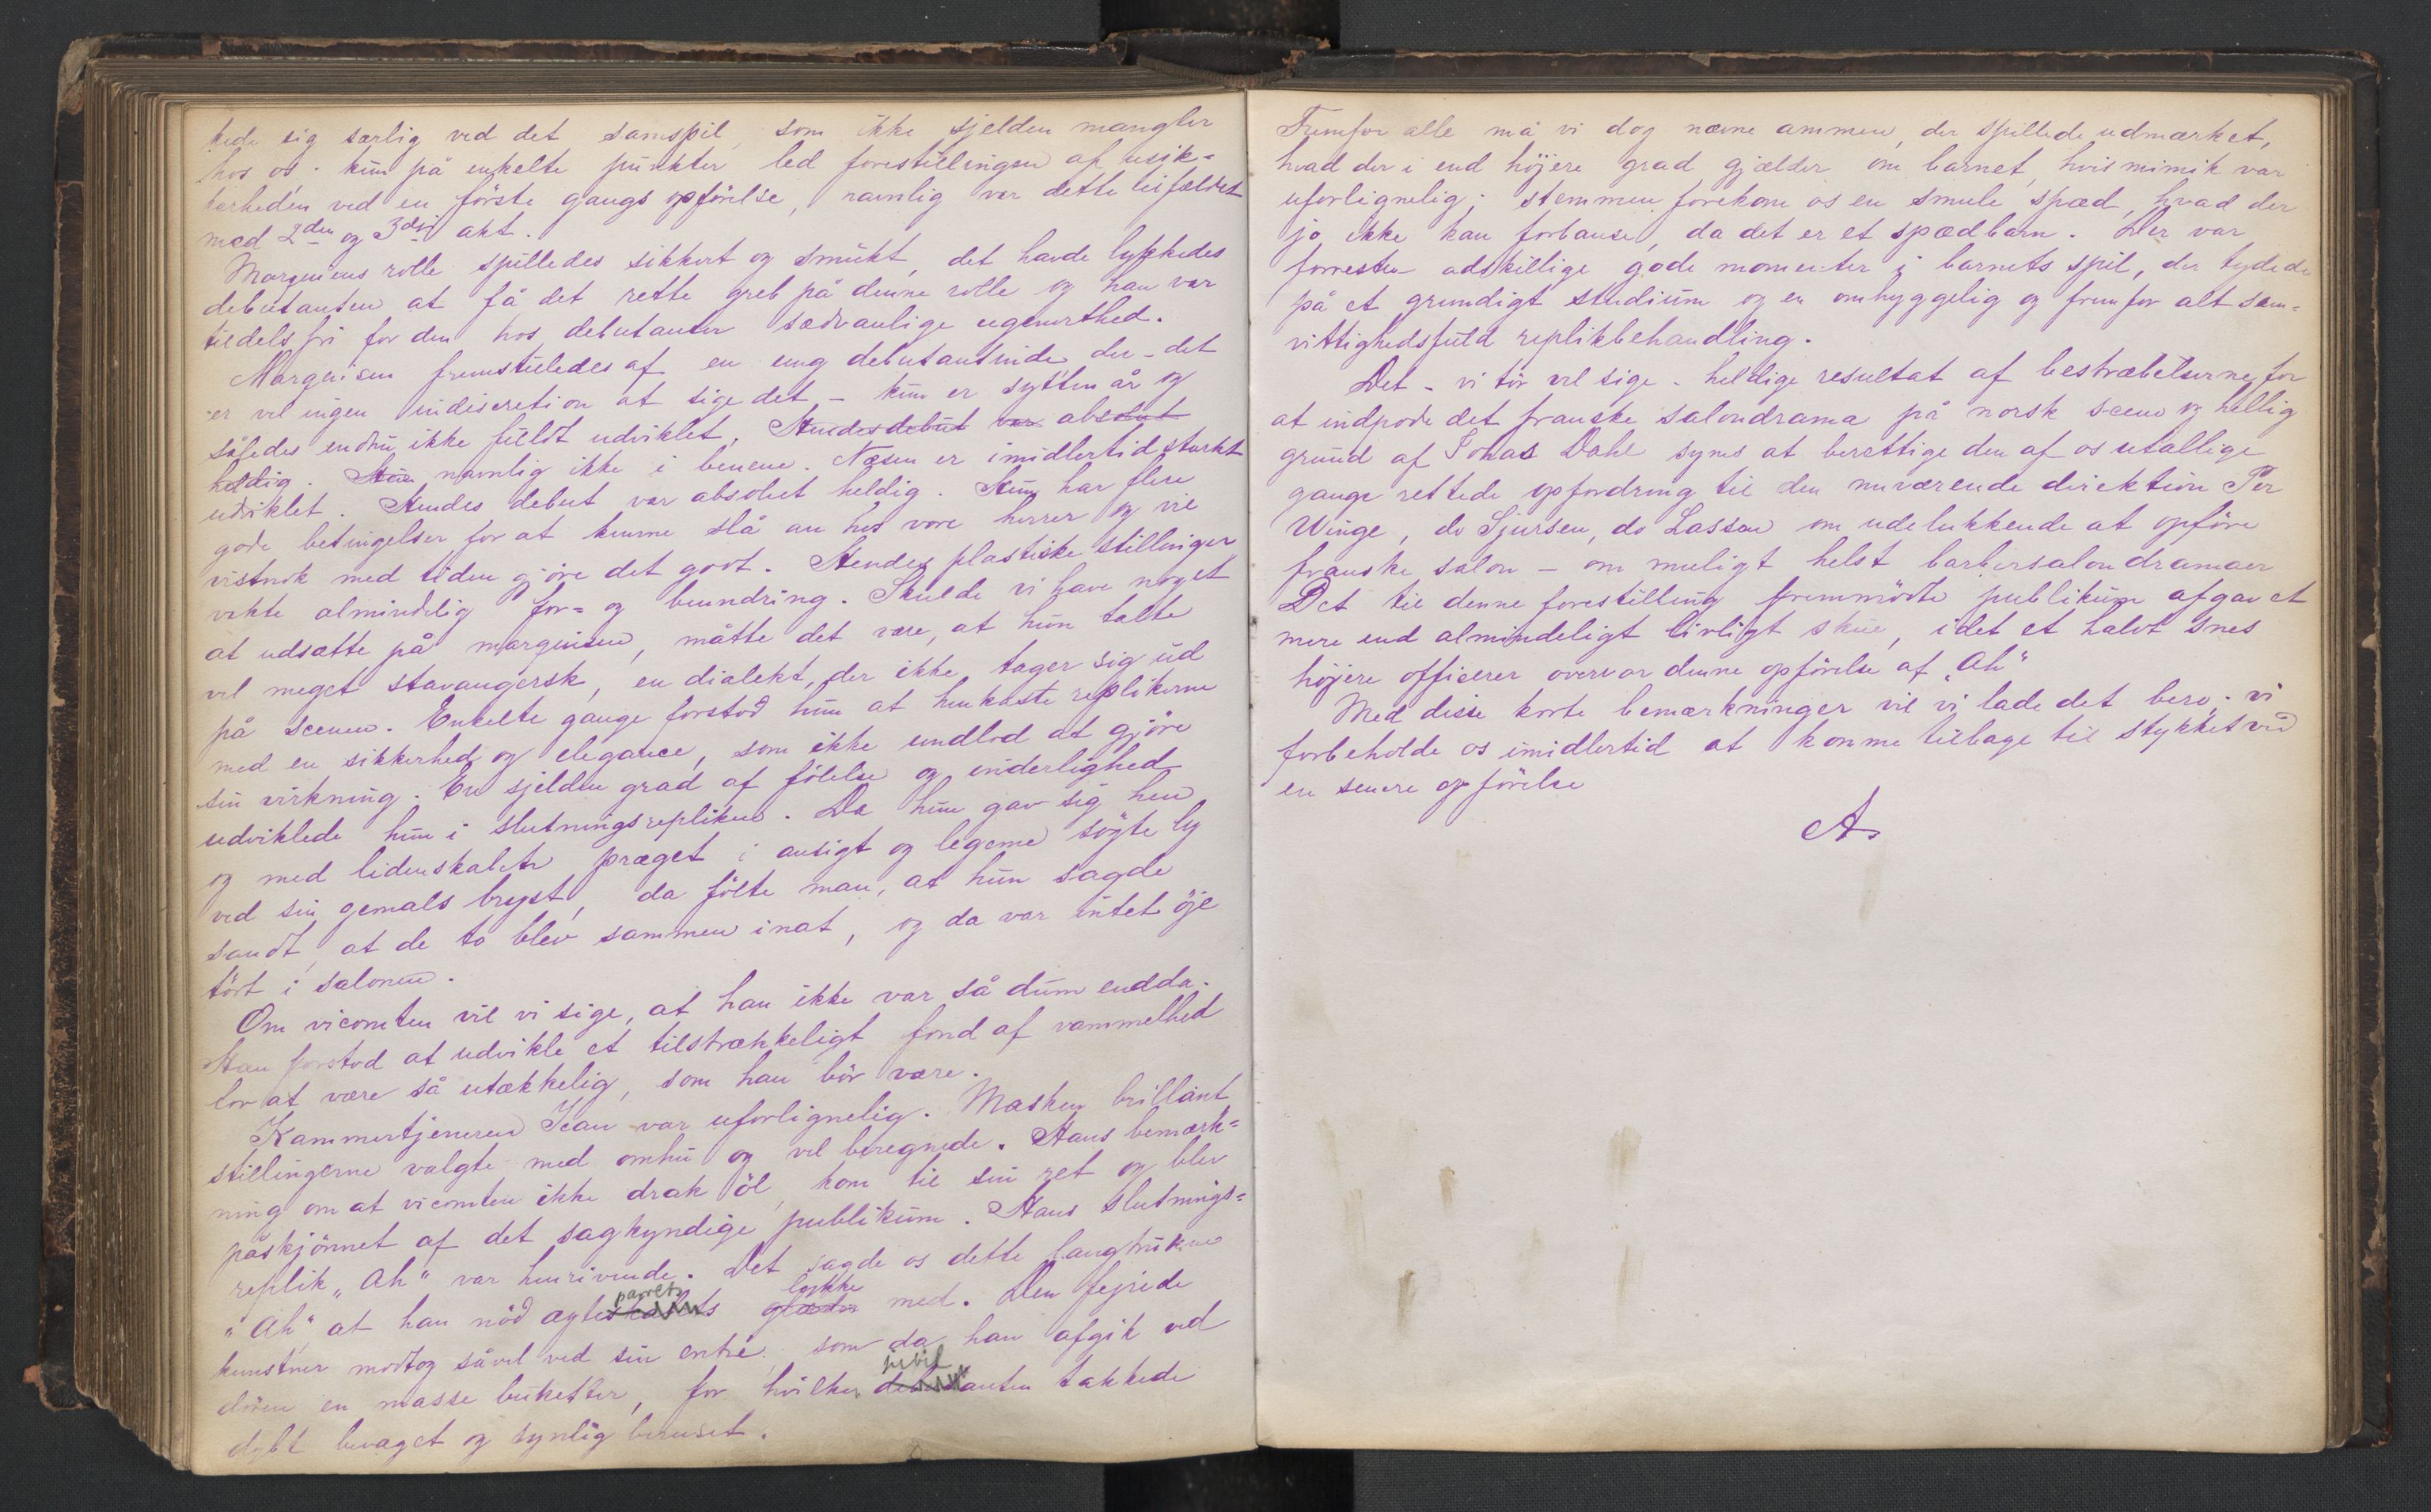 kede sig særlig ved det samspil, som ikke sjelden mangler
hos os. kun på enkelte punkter led forestillingen af usik=
kerheden ved en förste gangs opförelse, navnlig var dette tilfældet
med 2den og 3die akt.
Marquiens rolle spilledes sikkert og smukt, det havde lykkedes
debutanten at få det rette greb på denne rolle og han var
tildels fri for den hos debutanter sædvanlige ugenerthed.
Marquisen fremstilledes af en ung debutantinde der - det
er vel ingen indiscretion at sige det - kun er sytten år og
således endnu ikke fuldt udviklet, Hendes debut var absolut
heldig. Hun navnlig ikke i benene. Næsen er imidlertid stærkt
udviklet. Hendes debut var absolut heldig. Hun har flere
gode betingelser for at kunne slå an hos vore herrer og vil
vistnok med tiden gjöre det godt. Hendes plastiske stillinger
vakte almindelig for= og beundring. Skulde vi have noget
at udsætte på marquisen, måtte det være, at hun talte
vel meget stavangersk, en dialekt, der ikke tager sig ud
på scenen. Enkelte gange forstod hun at henkaste replikerne
med en sikkerhed og elegance, som ikke undlod at gjöre
sin virkning. En sjelden grad af fölelse og inderlighed
udviklede hun i slutningsrepliken. Da hun gav sig hen
og med lidenskaben præget i ansigt og legeme sögte ly
ved sin gemals bryst, da fölte man, at hun sagde
sandt, at de to blev sammen inat, og da var intet öje
tört i salonen.
Om vicomten vil vi sige, at han ikke var så dum endda.
Han forstod at udvikle et tilstrækkeligt fond af vammelhed
for at være så utækkelig, som han bör være.
Kammertjeneren Jean var uforlignelig. Masken brillant
stillingerne valgte med omhu og vel beregnede. Hans bemærk=
ning om at vicomten ikke drak öl, kom til sin ret og blev
påskjönnet af det sagkyndige publikum. Hans slutnings=
replik „Ah" var henrivende. Det sagde os dette langtrukne
„Ah" at han nöd ægteskabets parrets glæde lykke med. Den fejrede
kunstner modtog såvel ved sin entré, som da han afgik ved
dören en masse buketter, for hvilke debutanten jubil takkede
dybt bevæget og synlig beruset.
Fremfor alle må vi dog nævne ammen, der spillede udmærket,
hvad der i end höjere grad gjælder om barnet, hvis mimik var
uforlignelig; stemmen forekom os en smule spæd, hvad der
jo ikke kan forbause, da det er et spædbarn. Der var
forresten adskillige gode momenter i barnets spil, der tydede
på et grundigt studium og en omhyggelig og fremfor alt sam=
vittighedsfuld replikbehandling.
Det - vi tör vel sige - heldige resultat af bestræbelserne for
at indpode det franske salondrama på norsk scene og hellig
grund af Jonas Dahl synes at berettige den af os utallige
gange rettede opfordring til den nuværende direktion Per
Winge, do Sjursen, do Lasson om udelukkende at opföre
franske salon - om muligt helst barbersalondramaer
Det til denne forestilling fremmödte publikum afgav et
mere end almindeligt livligt skue, idet et halvt snes
höjere officerer overvar denne opförelse af „Ah"
Med disse korte bemærkninger vil vi lade det bero; vi
forbeholde os imidlertid at komme tilbage til stykket ved
en senere opförelse
A.